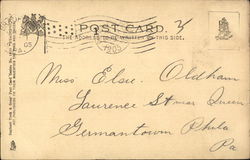 POST CARD.
THE ADDRESS TO BE WRITTEN ON THIS SIDE.
1905
Miss Elsie. Oldham
Laurence St near Queen
Germantown Phila
Pa